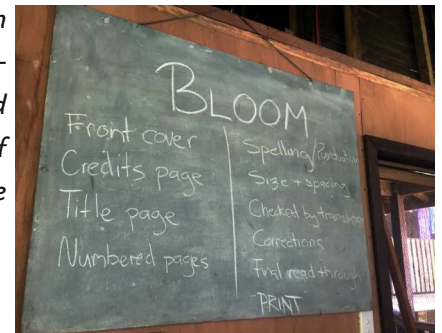 n
–
d
f
e
BLOOM
Front cover
Credits page
Title page
Numbered pages
Spelling/Punctuation
Size + spacing
Checked by
Corrections
Final read through
PRINT